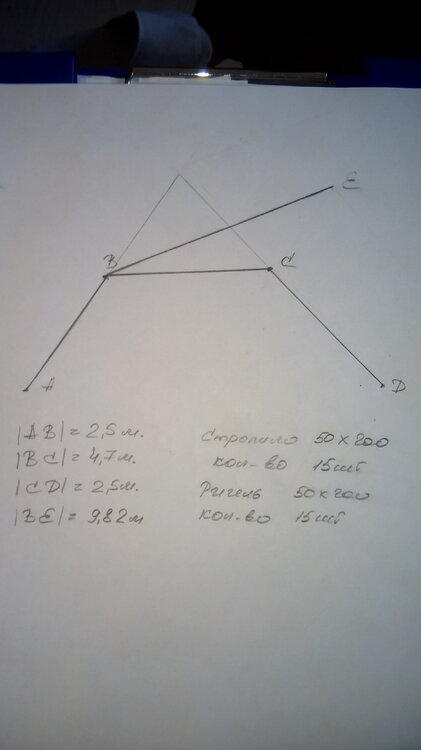 E
B
C
A
D
|AB| = 2,5 м.
|BC| = 4,7 м.
|CD| = 2,5 м.
|BE| = 9,82 м
Стропило 50 х 200
кол-во 15 шт
Ригель 50 х 200
кол-во 15 шт